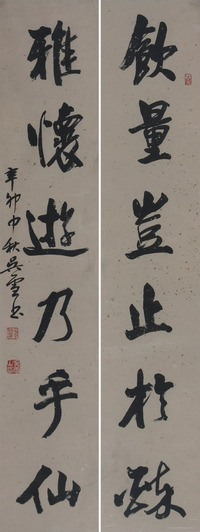 飲量豈止於
雅懷遊乃乎仙
辛卯中秋吳雲書